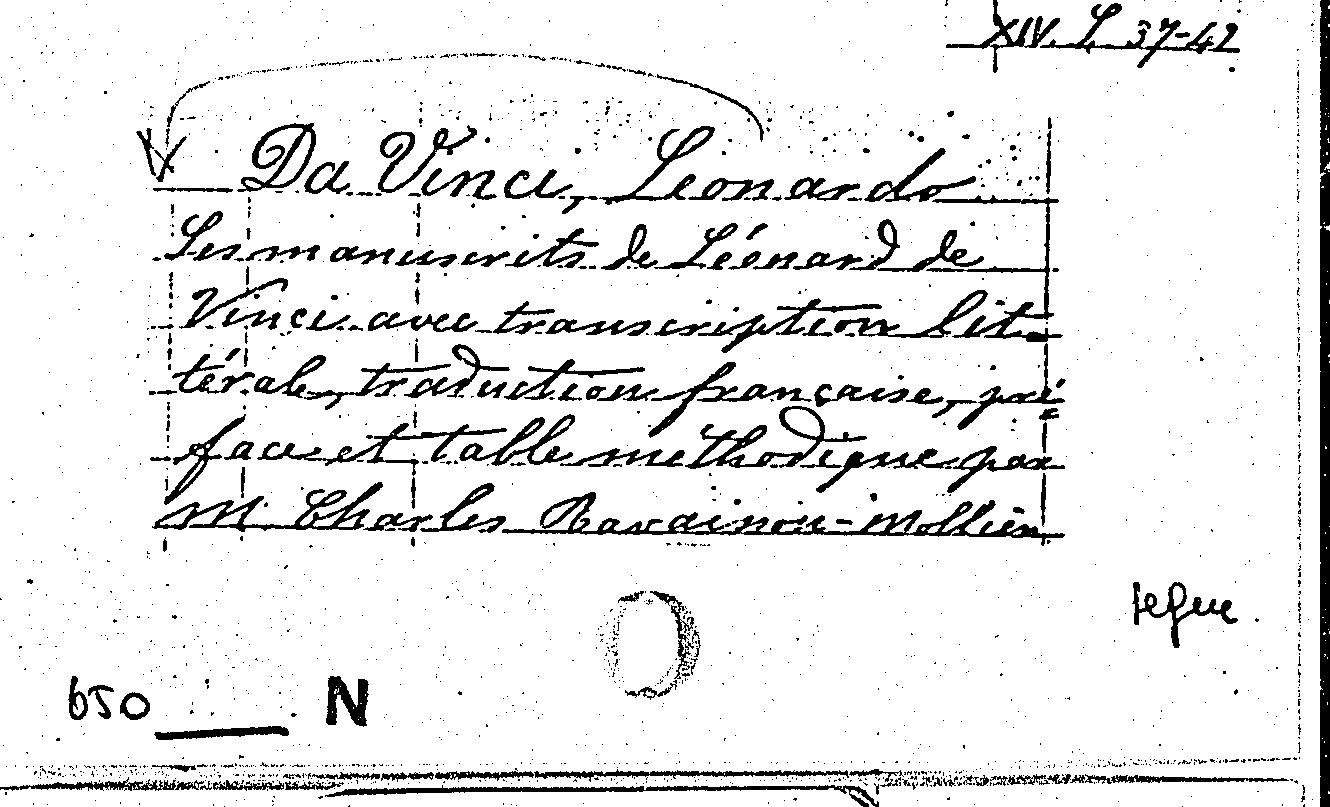 XIV. L. 37-42
Da Vinci, Leonardo
Les manuscrits de Léonard de
Vinci avec transcription lit-
térale, traduction française, pré=
face et table méthodique par
M. Charles Ravaisson-Mollien
segue
650 N